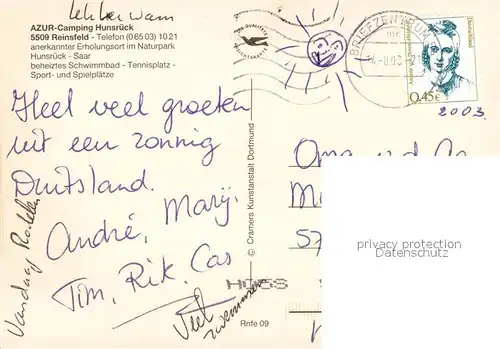 lekker warm
AZUR-Camping Hunsrück
5509 Reinsfeld - Telefon (06503) 1021
anerkannter Erholungsort im Naturpark
Hunsrück - Saar
beheiztes Schwimmbad - Tennisplatz -
Sport- und Spielplätze
Heel veel groeten
uit een zonnig
Duitsland.
André, Mary,
Tim, Rik. Cas
Vandaag
Veel
zwemmen
© Cramers Kunstanstalt Dortmund
Rnfe 09
BRIEFZENTRUM
Deutschland
0,45€
2003
Oma und
57
privacy protection
Datenschutz